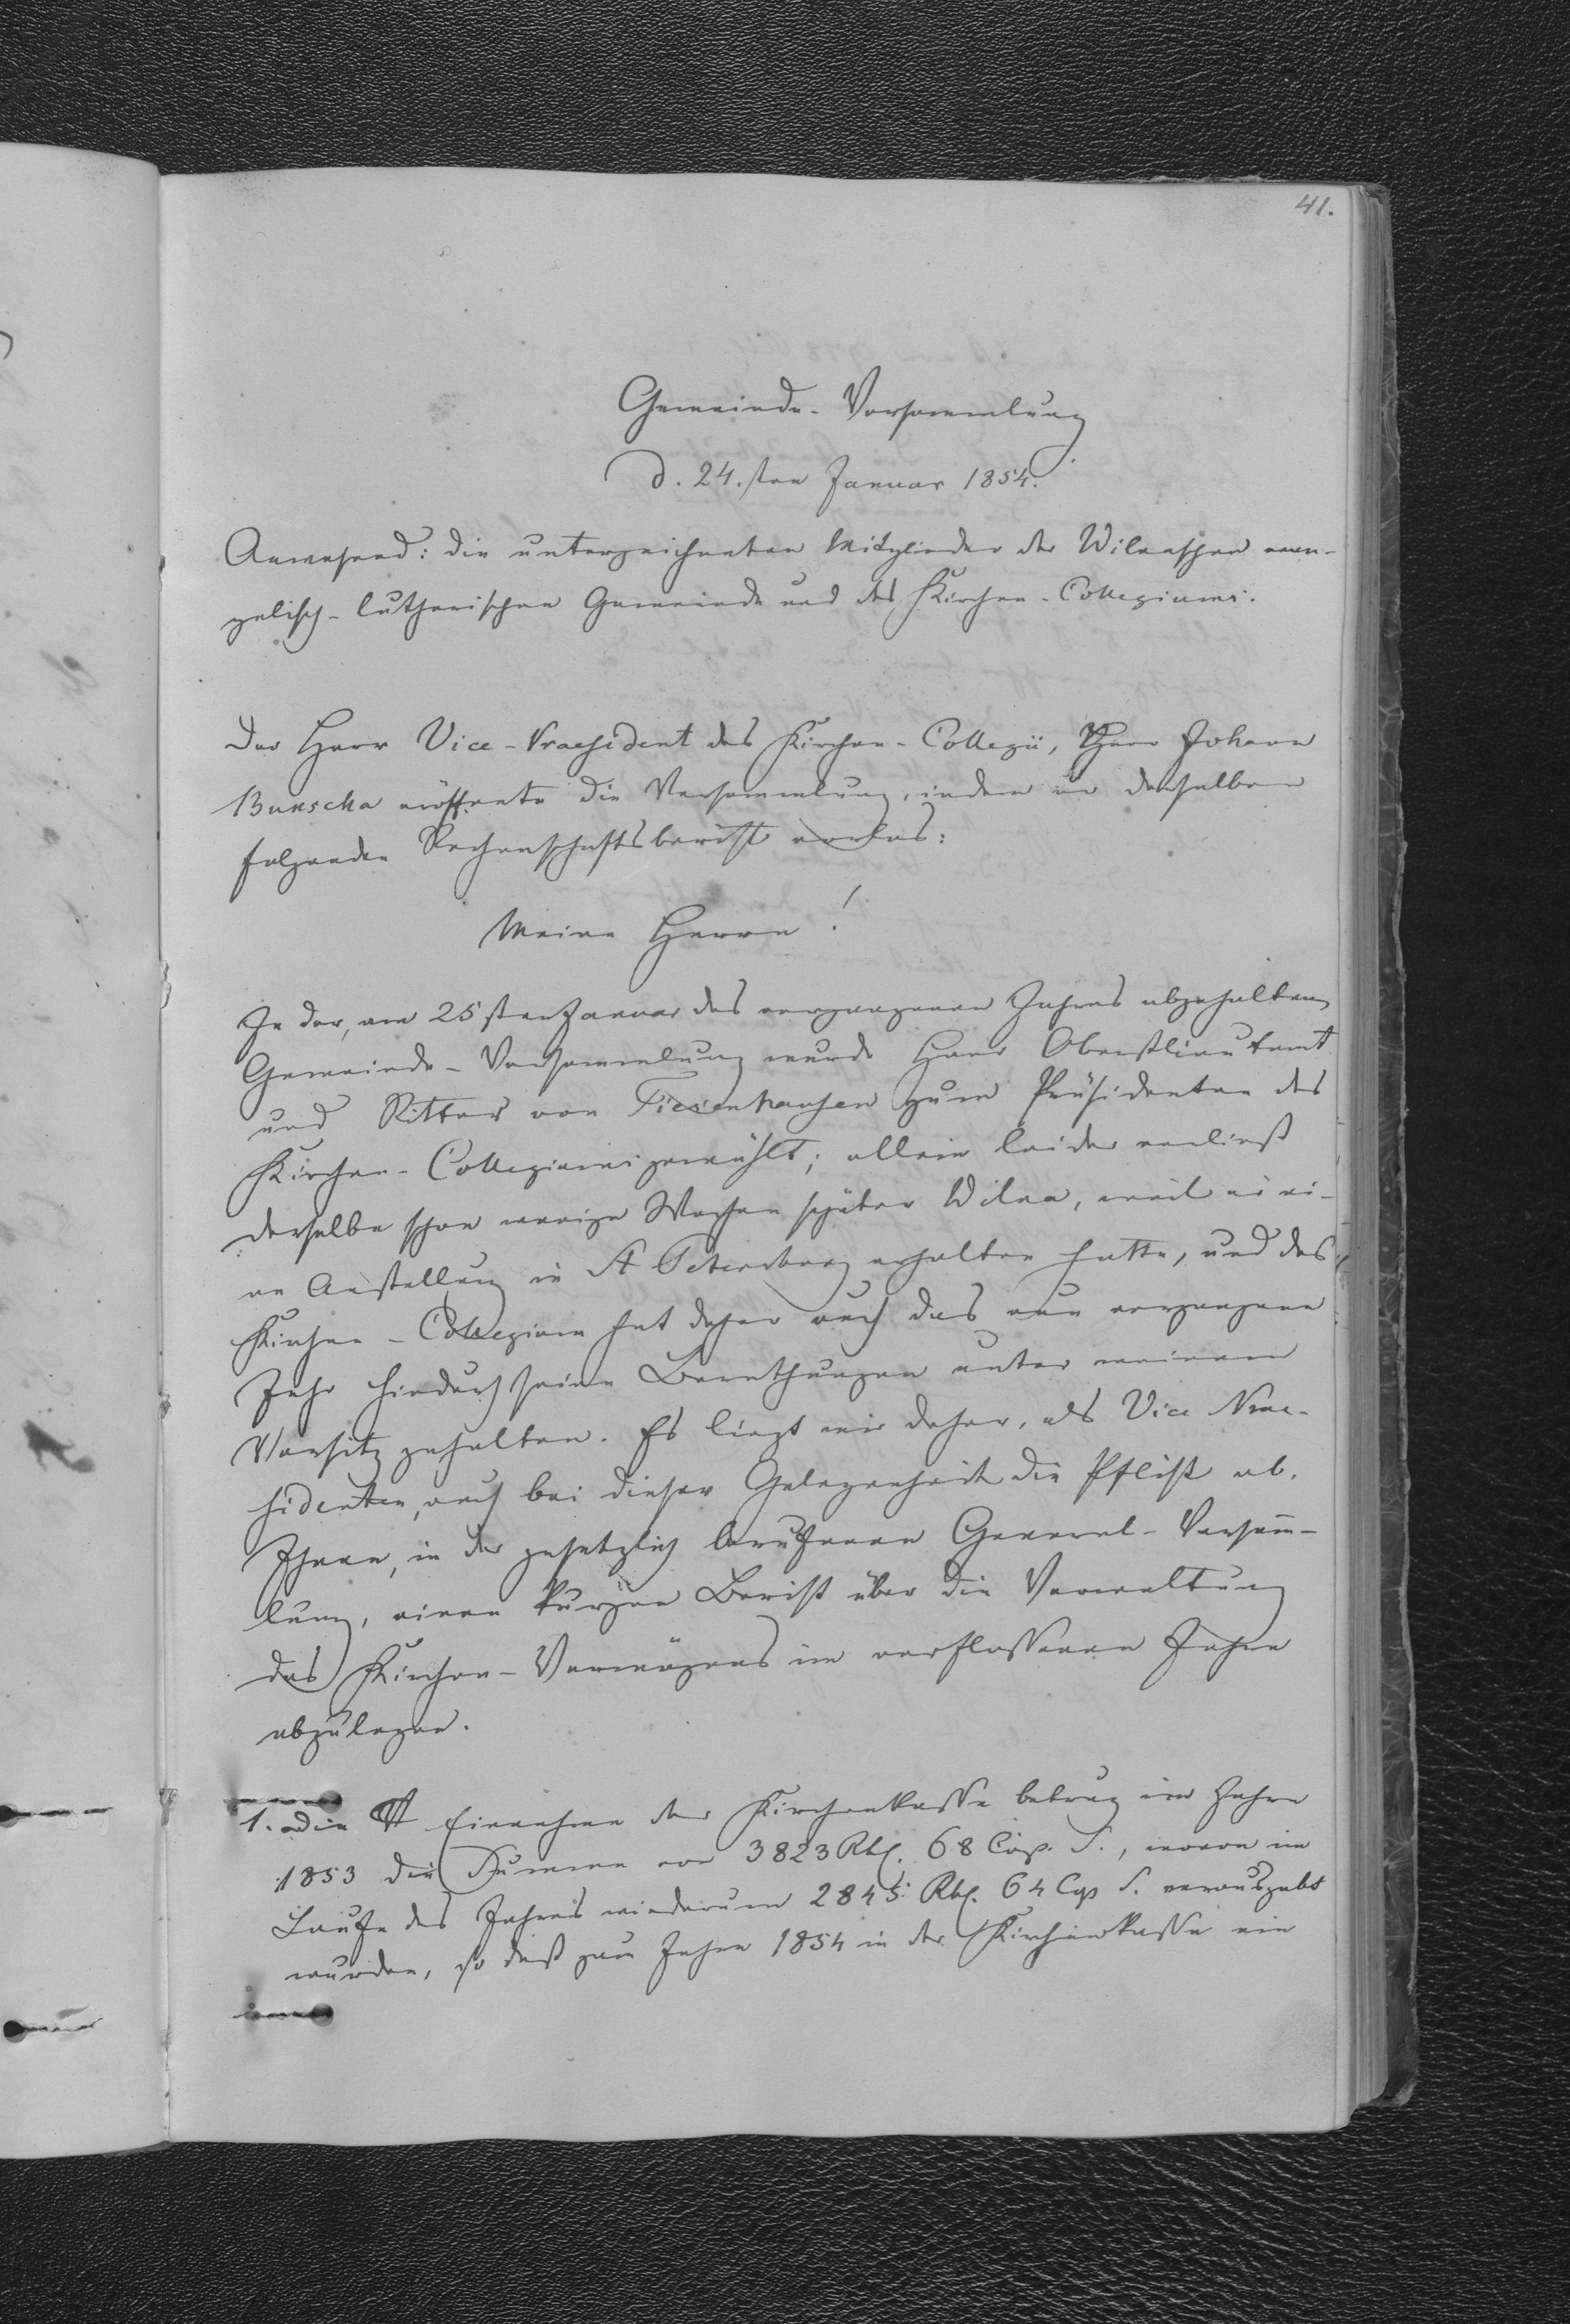 41.
Gemeinde-Versammlung
d. 24.sten Januar 1854.
Anwesend: die unterzeichneten Mitglieder der Wilnaschen evan-
gelisch-lutherischen Gemeinde und des Kirchen-Collegiums.
Der Herr Vice-Praesident des Kirchen-Collegii, Herr Johann
Bunscha eröffnete die Versammlung, indem er derselben
folgenden Rechenschaftsbericht vorlas:
Meine Herren!
In der, am 25sten Januar des vergangenen Jahres abgehaltenen
Gemeinde-Versammlung wurde Herr Obristlieutenant
und Ritter von Tiesenhausen zum Präsidenten des
Kirchen-Collegiums gewählt; allein leider verließ
derselbe schon wenige Wochen später Wilna, weil er ei-
ne Anstellung in St Petersburg erhalten hatte, und das
Kirchen-Collegium hat daher auch das nun vergangene
Jahr hindurch seine Berathungen unter meinem
Vorsitz gehalten. Es liegt mir daher, als Vice Prae-
sidenten, auch bei dieser Gelegenheit die Pflicht ob,
Ihnen, in der gesetzlich berufenen General-Versam̅-
lung, einen kurzen Bericht über die Verwaltung
des Kirchen-Vermögens im verflossenen Jahre
abzulegen.
1. Die Einnahme der Kirchenkasse betrug im Jahre
1853 die Summe von 3823 Rbl. 68 Cop. S., wovon im
Laufe des Jahres wiederum 2845 Rbl. 64 Cop S. verausgabt
wurden, so daß zum Jahre 1854 in der Kirchenkasse ein